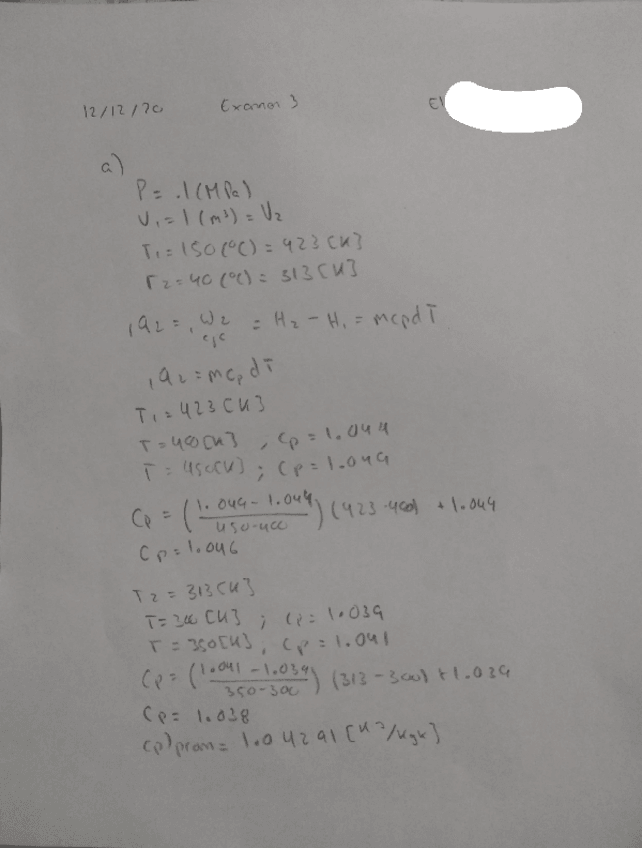 12/12/20 Examen 3
a)
P = .1 (MPa)
V₁ = 1 (m³) = V₂
T₁ = 150 (°C) = 423 [K]
T₂ = 40 (°C) = 313 [K]
₁q₂ = ₁W₂ = H₂ - H₁ = mcpdT
₁q₂ = mcpdT
T₁ = 423 [K]
T = 400 [K] , Cp = 1.044
T = 450 [K] ; Cp = 1.049
Cp = (1.049 - 1.044 / 450 - 400) (423 - 400) + 1.044
Cp = 1.046
T₂ = 313 [K]
T = 300 [K] ; Cp = 1.039
T = 350 [K] , Cp = 1.041
Cp = (1.041 - 1.039 / 350 - 300) (313 - 300) + 1.039
Cp = 1.038
cp)prom = 1.04291 [KJ/kgK]